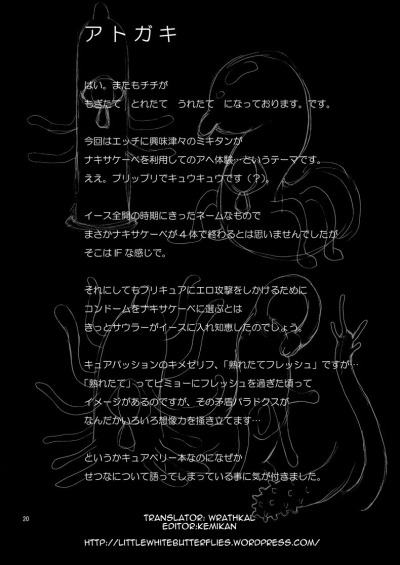 アトガキ
はい。またもチチが
もぎたて とれたて うれたて になっております。です。
今回はエッチに興味津々のミキタンが
ナキサケーベを利用してのアヘ体験…というテーマです。
ええ。ブリップリでキュウキュウです(?)。
イース全開の時期にきったネームなもので
まさかナキサケーベが4体で終わるとは思いませんでしたが
そこはIFな感じで。
それにしてもプリキュアにエロ攻撃をしかけるために
コンドームをナキサケーベに選ぶとは
きっとサウラーがイースに入れ知恵したのでしょう。
キュアパッションのキメゼリフ、「熟れたてフレッシュ」ですが…
「熟れたて」ってビミョーにフレッシュを過ぎた頃って
イメージがあるのですが、その矛盾パラドクスが
なんだかいろいろ想像力を掻き立てます…
というかキュアベリー本なのになぜか
せつなについて語ってしまっている事に気が付きました。
20
TRANSLATOR: WRATHKAL
EDITOR:KEMIKAN
HTTP://LITTLEWHITEBUTTERFLIES.WORDPRESS.COM/